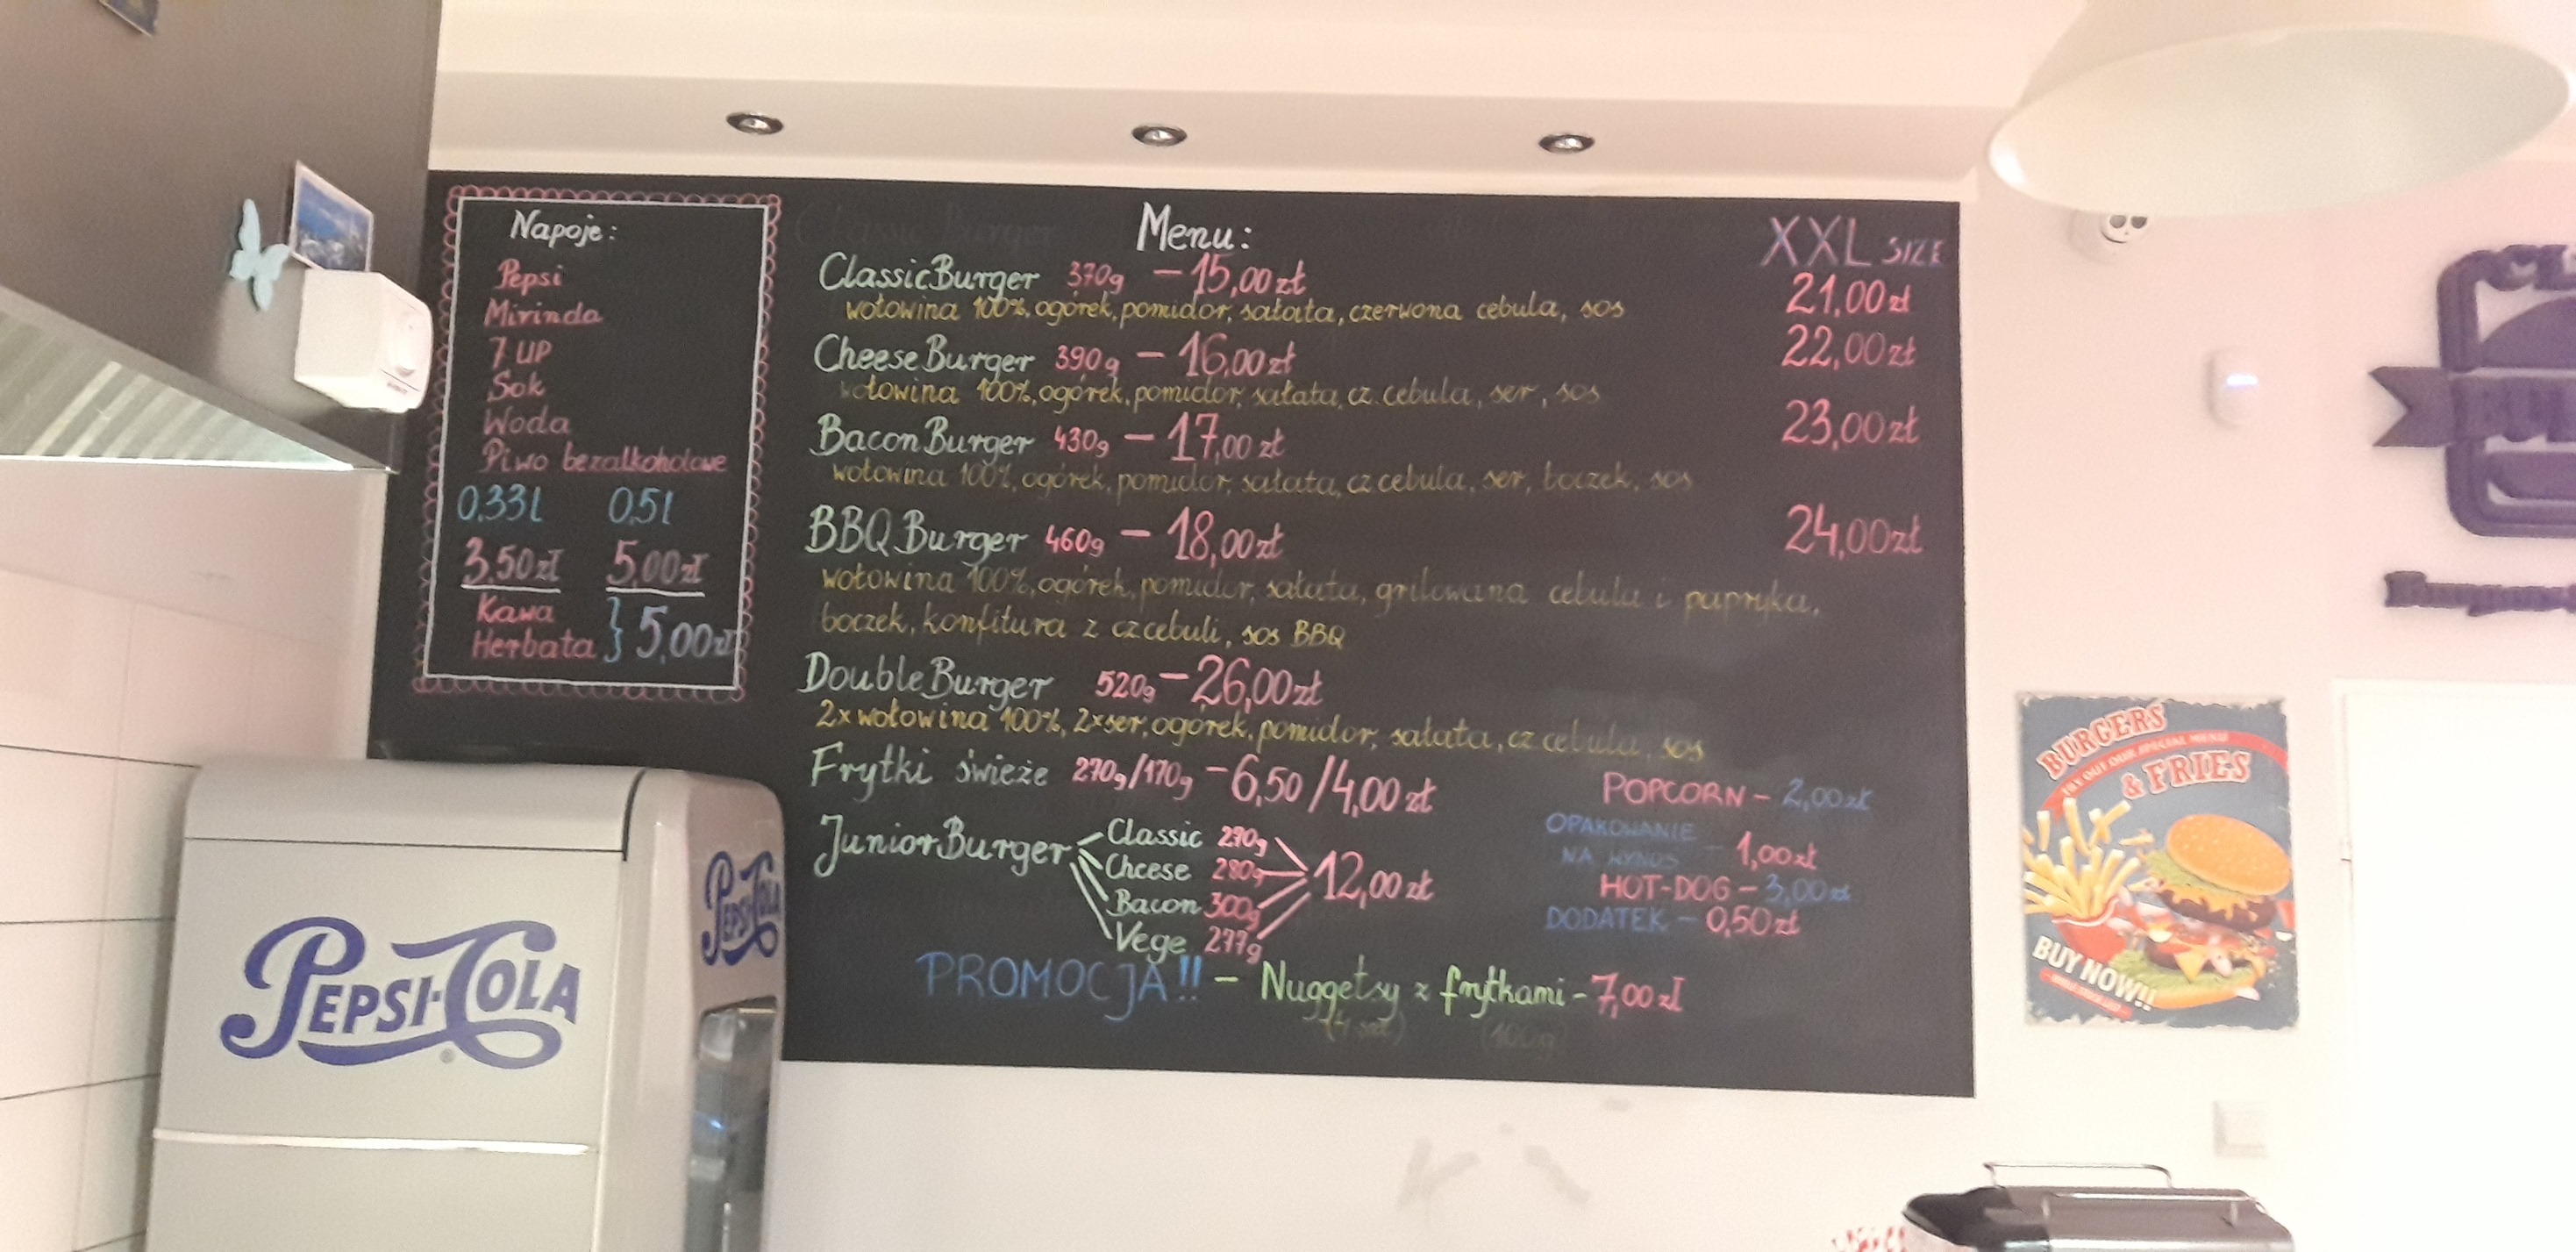 Napoje:
Pepsi
Mirinda
7 UP
Sok
Woda
Piwo bezalkoholowe
0,33l 0,5l
3,50zł 5,00zł
Kawa
Herbata } 5,00zł
Menu:
XXL SIZE
ClassicBurger 370g – 15,00zł 21,00zł
wołowina 100%, ogórek, pomidor, sałata, czerwona cebula, sos
CheeseBurger 390g – 16,00zł 22,00zł
wołowina 100%, ogórek, pomidor, sałata, cz. cebula, ser, sos
BaconBurger 430g – 17,00 zł 23,00zł
wołowina 100%, ogórek, pomidor, sałata, cz cebula, ser, boczek, sos
BBQ Burger 460g – 18,00zł 24,00zł
wołowina 100%, ogórek, pomidor, sałata, grilowana cebula i papryka,
boczek, konfitura z cz cebuli, sos BBQ
DoubleBurger 520g – 26,00zł
2x wołowina 100%, 2x ser, ogórek, pomidor, sałata, cz cebula, sos
Frytki świeże 270g/170g – 6,50 /4,00 zł
JuniorBurger
Classic 270g
Cheese 280g
Bacon 300g
Vege 277g
12,00 zł
POPCORN – 2,00zł
OPAKOWANIE
NA WYNOS – 1,00zł
HOT-DOG – 3,00zł
DODATEK – 0,50zł
PROMOCJA!! – Nuggetsy z frytkami – 7,00 zł
(4 szt) (100g)
PEPSI-COLA
PEPSI-COLA
BURGERS
TRY OUT OUR SPECIAL MENU
& FRIES
BUY NOW!!